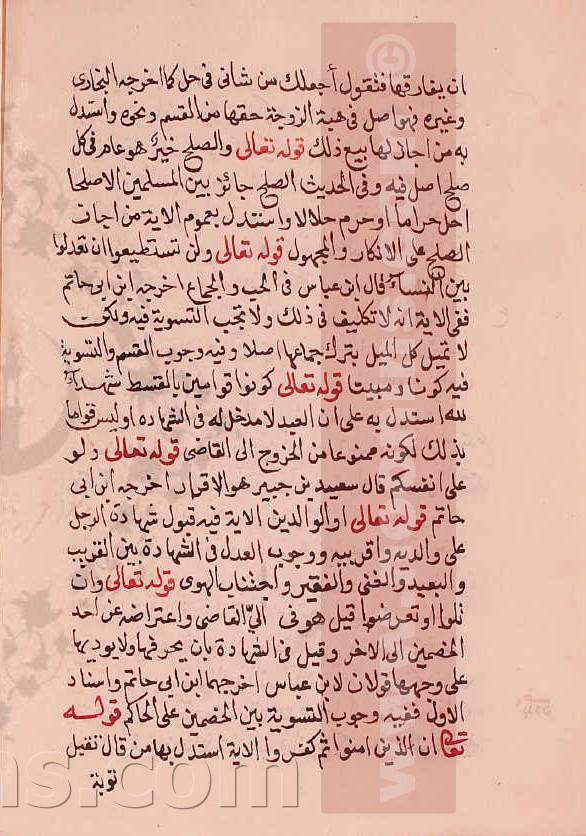 ان يفارقها فتقول أجعلك من شانى فى حل كما اخرجه البخارى
وغيره فهو اصل فى هبة الزوجة حقها من القسم ونحوه واستدل
به من اجاز لها بيع ذلك قوله تعالى والصلح خير هو عام فى كل
صلح اصل فيه وفى الحديث الصلح جائز بين المسلمين الاصلحا
احل حراما او حرم حلالا واستدل بعموم الاية من اجاز
الصلح على الانكار والمجهول قوله تعالى ولن تستطيعوا ان تعدلوا
بين النساء قال ابن عباس فى الحب والجماع اخرجه ابن ابى حاتم
ففى الاية انه لا تكليف فى ذلك ولا تجب التسوية فيه
لا تميل كل الميل بترك جماعها اصلا وفيه وجوب القسم والتسوية
فيه كونا ومبيتا قوله تعالى كونوا قوامين بالقسط شهداء
لله استدل به على ان العبد لا مدخل له فى الشهاده اوليس قواما
بذلك لكونه ممنوعا من الخروج الى القاضى قوله تعالى ولو
على انفسكم قال سعيد بن جبير هو الاقرار اخرجه ابن ابى
حاتم قوله تعالى او الوالدين الاية فيه قبول شهادة الرجل
على والديه واقربيه ووجوب العدل فى الشهادة بين القريب
والبعيد والغنى والفقير واجتناب الهوى قوله تعالى وان
تلوا او تعرضوا قيل هو فى الىّ القاضى واعتراضه عن احد
الخصمين الى الاخر وقيل فى الشهادة بان يحرفها ولا يوديها
على وجهها قولان لابن عباس اخرجهما ابن ابى حاتم واسناد
الاول ففيه وجوب التسوية بين الخصمين على الحاكم قوله
تعالى ان الذين امنوا ثم كفروا الاية استدل بها من قال تقبل
توبة
ns.com